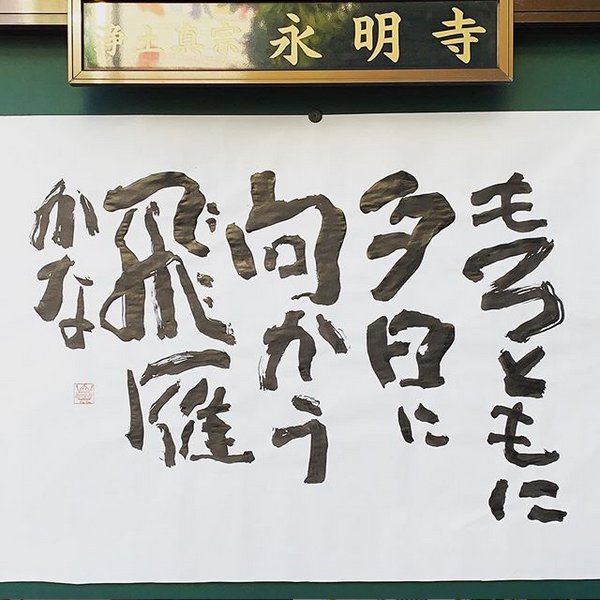 浄土真宗 永明寺
もろともに
夕日に
向かう
飛雁
かな